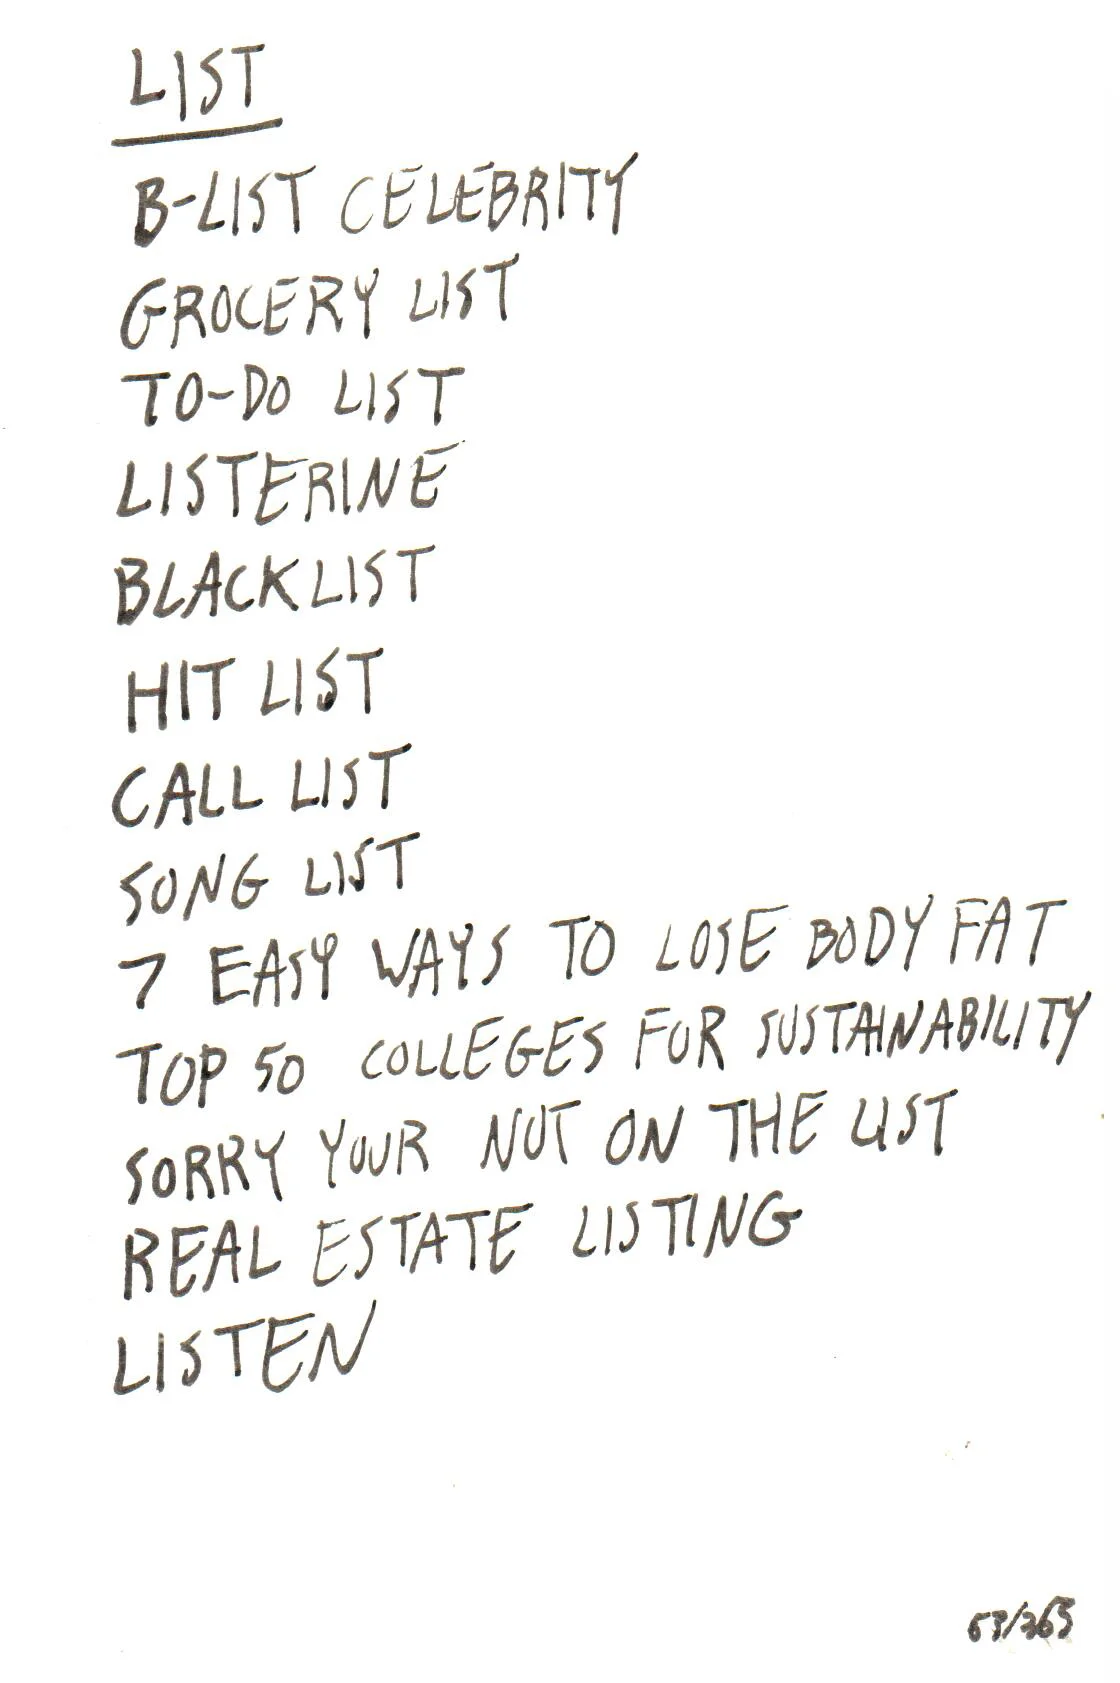 LIST
B-LIST CELEBRITY
GROCERY LIST
TO-DO LIST
LISTERINE
BLACKLIST
HIT LIST
CALL LIST
SONG LIST
7 EASY WAYS TO LOSE BODY FAT
TOP 50 COLLEGES FOR SUSTAINABILITY
SORRY YOUR NOT ON THE LIST
REAL ESTATE LISTING
LISTEN